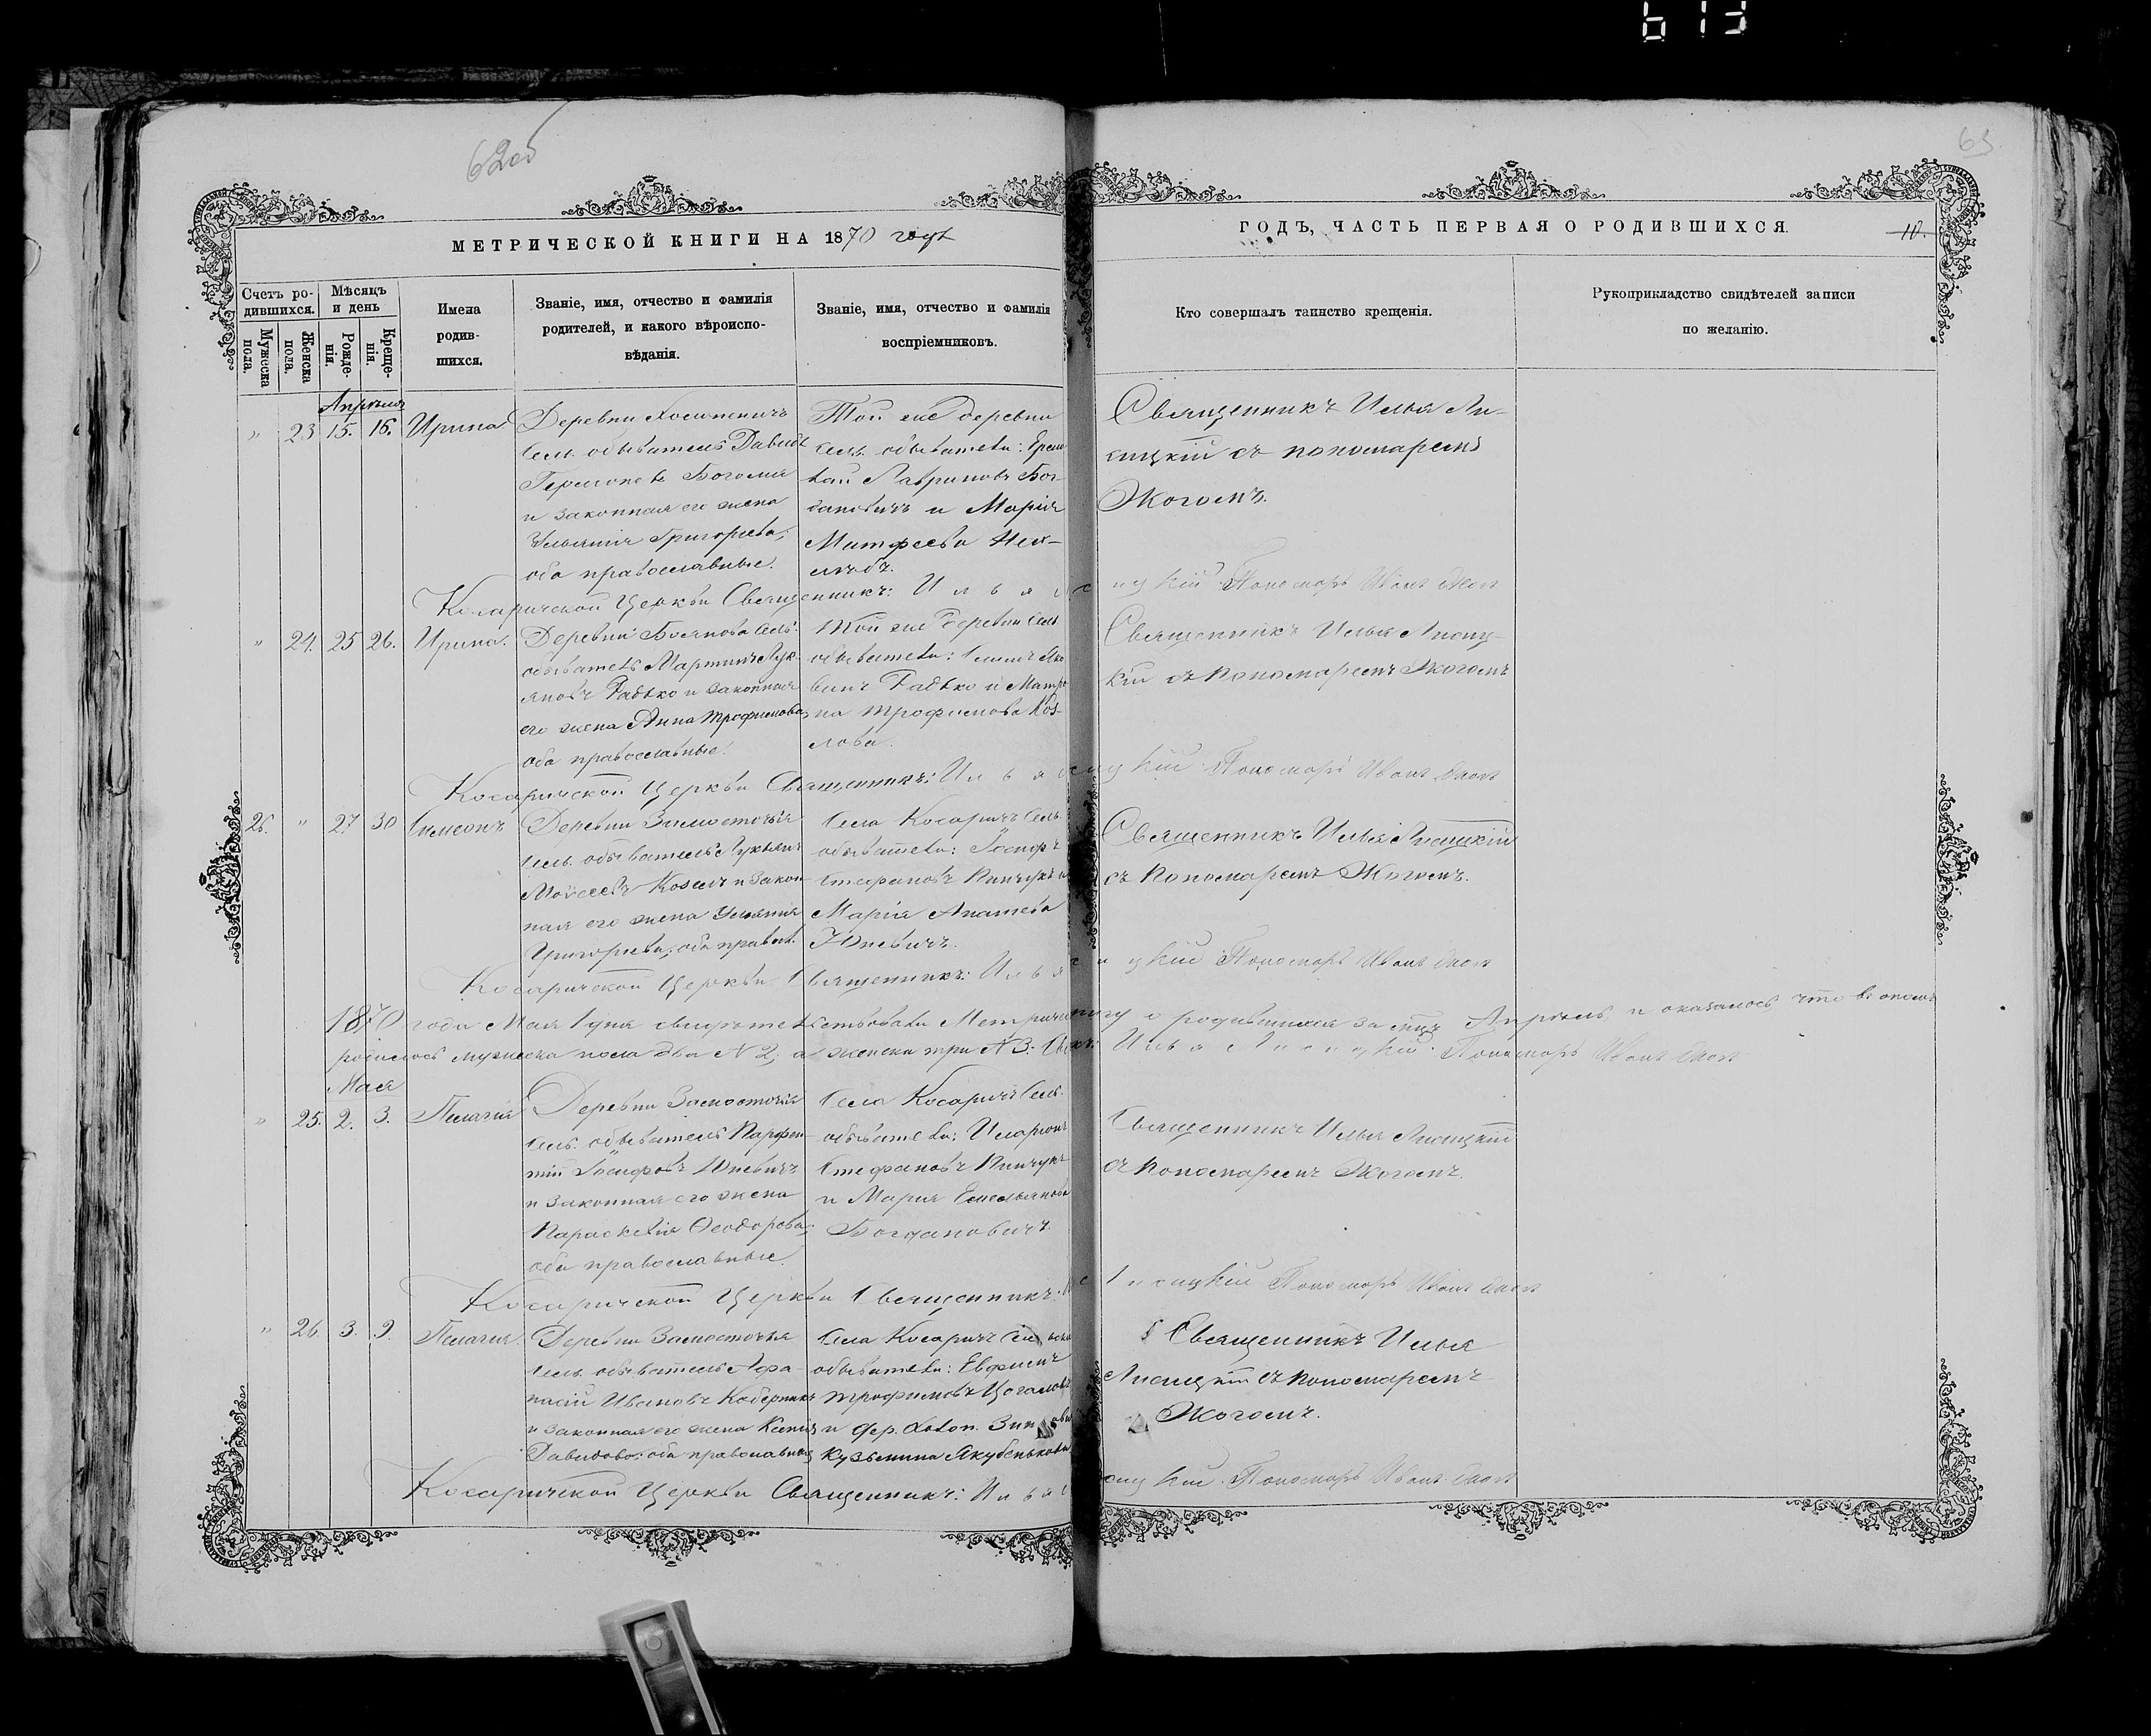 613
62об
63
МЕТРИЧЕСКОЙ КНИГИ НА 1870 годъ
ГОДЪ, ЧАСТЬ ПЕРВАЯ О РОДИВШИХСЯ.
10.
Счетъ ро-
дившихся.
Мужеска
пола.
Женска
пола.
Мѣсяцъ
и день
Рожде-
нія.
Креще-
нія.
Имена
родив-
шихся.
Званіе, имя, отчество и фамилія
родителей, и какого вѣроиспо-
вѣданія.
Званіе, имя, отчество и фамилія
воспріемниковъ.
Кто совершалъ таинство крещенія.
Рукоприкладство свидѣтелей записи
по желанію.
Апрѣля
" 23 15. 16. Ирина
Деревни
Сель. обыватель Давидъ
и законная его жена
Григорьева,
оба православные.
Той же деревни
сель. обыватели:
Лавриновъ Бог-
дановичъ и Марія
Матѳеева
Священникъ Илья Ли-
сицкій съ пономаремъ
Жогомъ.
Косаричской Церкви Священникъ: Илья Лисицкій Пономарь Иванъ Жогъ
" 24. 25 26. Ирина.
Деревни Боянова Сель.
обыватель Мартинъ Лук-
яновъ Радько и законная
его жена Анна Трофимова,
оба православные.
Той же деревни Сель.
обыватели:
Радько и Матро
на Трофимова Коз-
лова.
Священникъ Илья Лисиц-
кій съ Пономаремъ Жогомъ
Косаричской Церкви Священникъ: Илья Лисицкій Пономарь Иванъ Жогъ
25. " 27 30 Симеонъ
Деревни Замосточья
Сель. обыватель Лукьянъ
Моисеевъ Козелъ и закон-
ная его жена Ульянія
Григорьева, оба правосл.
Села Косаричъ Сель.
обыватели: Іосифъ
Стефановъ Пинчукъ и
Марія Игнатьева
Юневичъ.
Священникъ Илья Лисицкій
съ Пономаремъ Жогомъ.
Косаричской Церкви Священникъ: Илья Лисицкій Пономарь Иванъ Жогъ
1870 года Мая 1 дня свидѣтельствовали Метрическую книгу о родившихся за мцъ Апрѣль, и оказалось что въ ономъ
родилось мужеска пола два № 2, а женска три № 3. Илья Лисицкій. Пономарь Иванъ Жогъ
Мая
" 25. 2. 3. Пелагія
Деревни Замосточья
Сель. обыватель Парѳен-
тій Іосифовъ Юневичъ
и законная его жена
Параскевія Ѳеодорова,
оба православные.
Села Косаричъ Сель.
обыватели: Иларіонъ
Стефановъ Пинчукъ
и Марія Емельянова
Богдановичъ.
Священникъ Илья Лисицкій
съ Пономаремъ Жогомъ.
Косаричской Церкви Священникъ: Илья Лисицкій Пономарь Иванъ Жогъ
" 26. 3. 9. Пелагія.
Деревни Замосточья
Сель. обыватель Афа-
насій Ивановъ
и законная его жена Ксенія
Давидова, оба православные
Села Косаричъ
обыватели: Евфимъ
Трофимовъ
и дер.
Кузьмина Якубенькова
Священникъ Илья
Лисицкій съ Пономаремъ
Жогомъ.
Косаричской Церкви Священникъ: Илья Лисицкій Пономарь Иванъ Жогъ